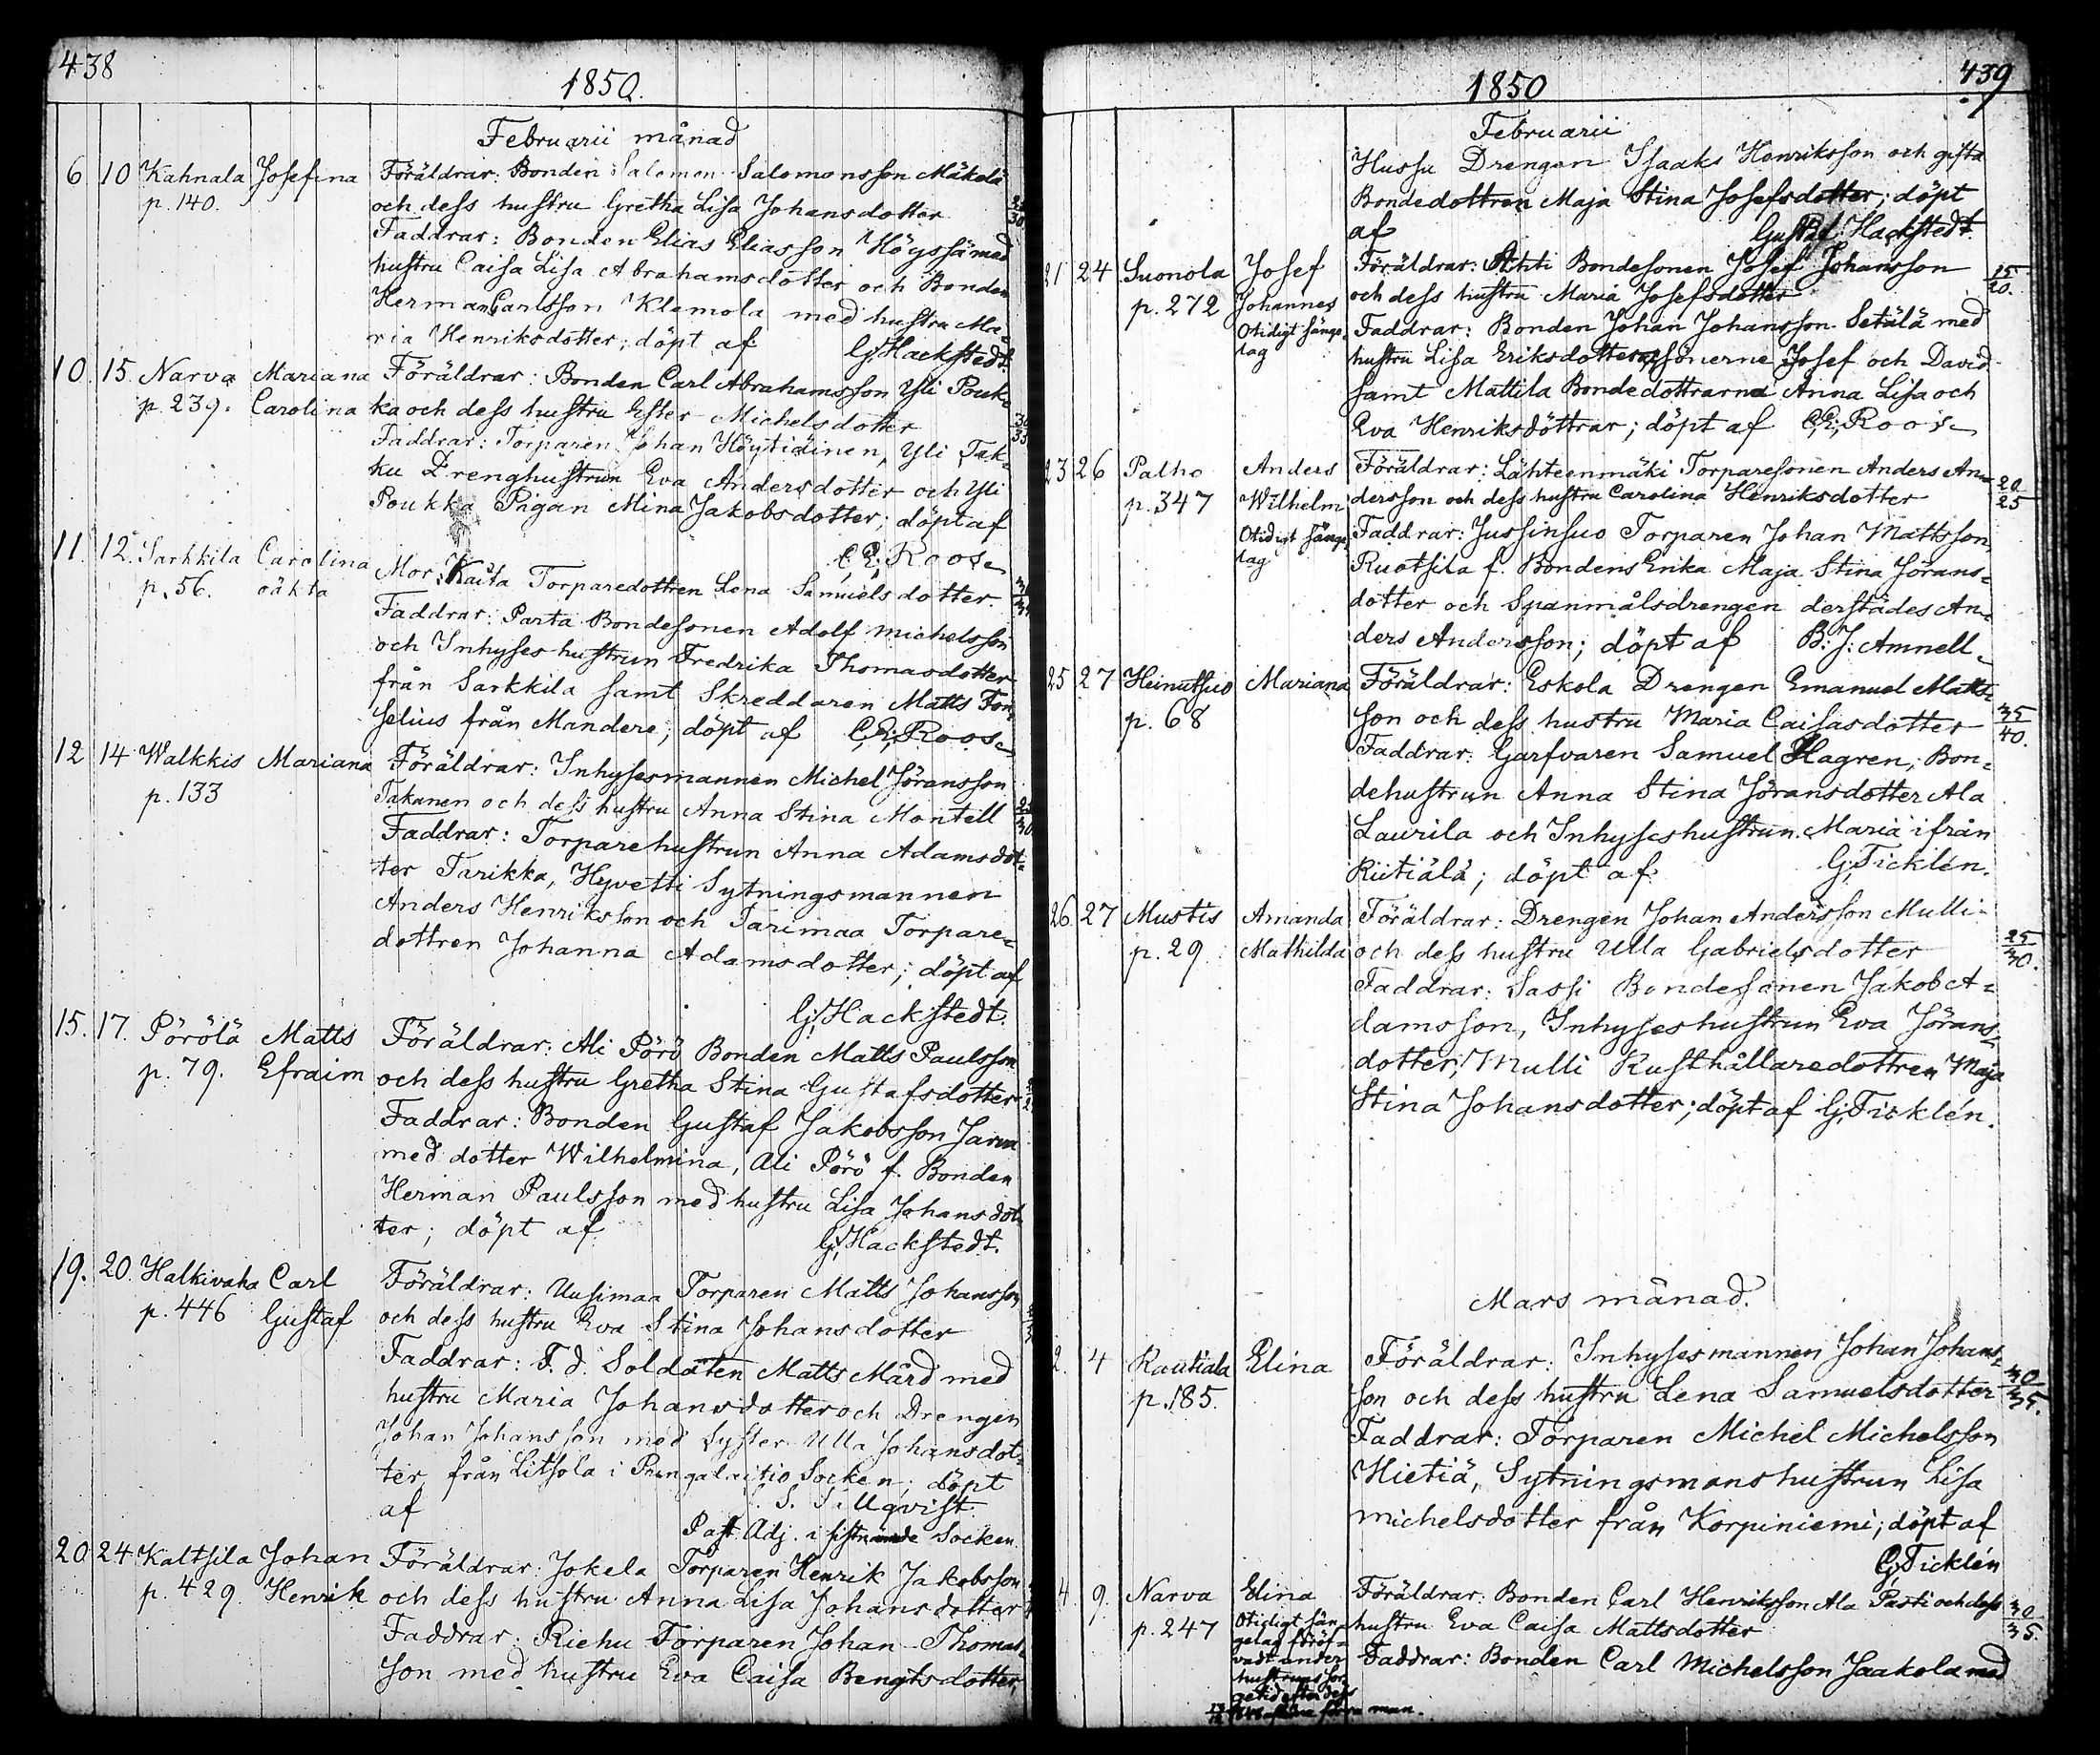 438
1850.
Februarii månad
6 10 Kahnala Josefina Föräldrar: Bonden Salomon Salomonsson Mäkelä
p. 140. och dess hustru Gretha Lisa Johansdotter
Faddrar: Bonden Elias Eliasson Höyssä med
hustru Caisa Lisa Abrahamsdotter och Bonden
Herman Carlsson Klemola med hustru Ma-
ria Henriksdotter; döpt af G: Hackstedt.
10. 15. Narva Mariana Föräldrar: Bonden Carl Abrahamsson Yli Pouk-
p. 239. Carolina ka och dess hustru Ester Michelsdotter 30/35
Faddrar: Torparen Johan Höytidinen, Yli Tak-
ku Drenghustrun Eva Andersdotter och Yli
Poukka Pigan Mina Jakobsdotter; döpt af
C. E: Roos
11. 12. Sarkkila Carolina Mor: Kaita Torparedottren Lena Samuelsdotter.
p. 56. oäkta Faddrar: Parta Bondesonen Adolf Michelsson
och Inhyseshustrun Fredrika Thomasdotter
från Sarkkila samt Skreddaren Matts Fon-
selius från Mandere; döpt af C. E: Roos
12 14 Walkkis Mariana Föräldrar: Inhysesmannen Michel Jöransson
p. 133 Takanen och dess hustru Anna Stina Montell
Faddrar: Torparehustrun Anna Adamsdot-
ter Tarikka, Hyvetti Sytningsmannen
Anders Henriksson och Tarimaa Torpare-
dottren Johanna Adamsdotter; döpt af
G: Hackstedt.
15. 17. Pörölä Matts Föräldrar: Ali Pörö Bonden Matts Paulsson
p. 79. Efraim och dess hustru Gretha Stina Gustafsdotter
Faddrar: Bonden Gustaf Jakobsson Jarva
med dotter Wilhelmina, Ali Pörö f. Bonden
Herman Paulsson med hustru Lisa Johansdot-
ter; döpt af G: Hackstedt.
19. 20. Halkivaha Carl Föräldrar: Uusimaa Torparen Matts Johansson
p. 446 Gustaf och dess hustru Eva Stina Johansdotter
Faddrar: F. d. Soldaten Matts Mård med
hustru Maria Johansdotter och Drengen
Johan Johansson med Syster Ulla Johansdot-
ter från Litsola i Pungalaitio Socken; döpt
af S. Tillqvist.
Past. Adj. i sistnämde Socken.
20 24 Kaltsila Johan Föräldrar: Jokela Torparen Henrik Jakobsson
p. 429. Henrik och dess hustru Anna Lisa Johansdotter
Faddrar: Riehu Torparen Johan Thomas-
son med hustru Eva Caisa Bengtsdotter,
439
1850
Februarii
Hussu Drengen Isaaks Henriksson och gifta
Bondedottren Maja Stina Josefsdotter; döpt
af Gustaf Hackstedt.
21 24 Suonola Josef Föräldrar: Ahti Bondesonen Josef Johansson 15/20.
p. 272 Johannes och dess hustru Maria Josefsdotter
Otidigt sänge- Faddrar: Bonden Johan Johansson Setälä med
lag hustru Lisa Eriksdotter, sönerne Josef och David
samt Mattila Bondedottrarna Anna Lisa och
Eva Henriksdöttrar; döpt af C. E: Roos
23 26 Palho Anders Föräldrar: Lähteenmäki Torparesonen Anders An- 20/25
p. 347 Wilhelm dersson och dess hustru Carolina Henriksdotter
Otidigt sänge- Faddrar: Jussinsuo Torparen Johan Mattsson,
lag Ruotsila f. Bondens Enka Maja Stina Jörans-
dotter och Spanmålsdrengen derstädes An-
ders Andersson; döpt af B: J: Amnell
25 27 Heinusuo Mariana Föräldrar: Eskola Drengen Emanuel Matts-
p. 68 son och dess hustru Maria Caisasdotter 35/40.
Faddrar: Garfvaren Samuel Hagren, Bon-
dehustrun Anna Stina Jöransdotter Ala
Laurila och Inhyseshustrun Maria ifrån
Riitiälä; döpt af G: Ticklén.
26 27 Mustis Amanda Föräldrar: Drengen Johan Andersson Mulli
p. 29. Mathilda och dess hustru Ulla Gabrielsdotter 25/30.
Faddrar: Sassi Bondesonen Jakob A-
damsson, Inhyseshustrun Eva Jörans-
dotter, Mulli Rusthållaredottren Maja
Stina Johansdotter; döpt af G: Ticklén.
Mars månad.
2. 4 Rautiala Elina Föräldrar: Inhysesmannen Johan Johans- 30/35.
p. 185. son och dess hustru Lena Samuelsdotter
Faddrar: Torparen Michel Michelsson
Hietiä, Sytningsmanshustrun Lisa
Michelsdotter från Korpiniemi; döpt af
G: Ticklén
4 9. Narva Elina Föräldrar: Bonden Carl Henriksson Ala Pasti och dess 30/35.
p. 247 Otidigt sän- hustru Eva Caisa Mattsdotter
gelag föröf- Faddrar: Bonden Carl Michelsson Jaakola med
vadt under
hustruns sor-
getid efter dess
man.